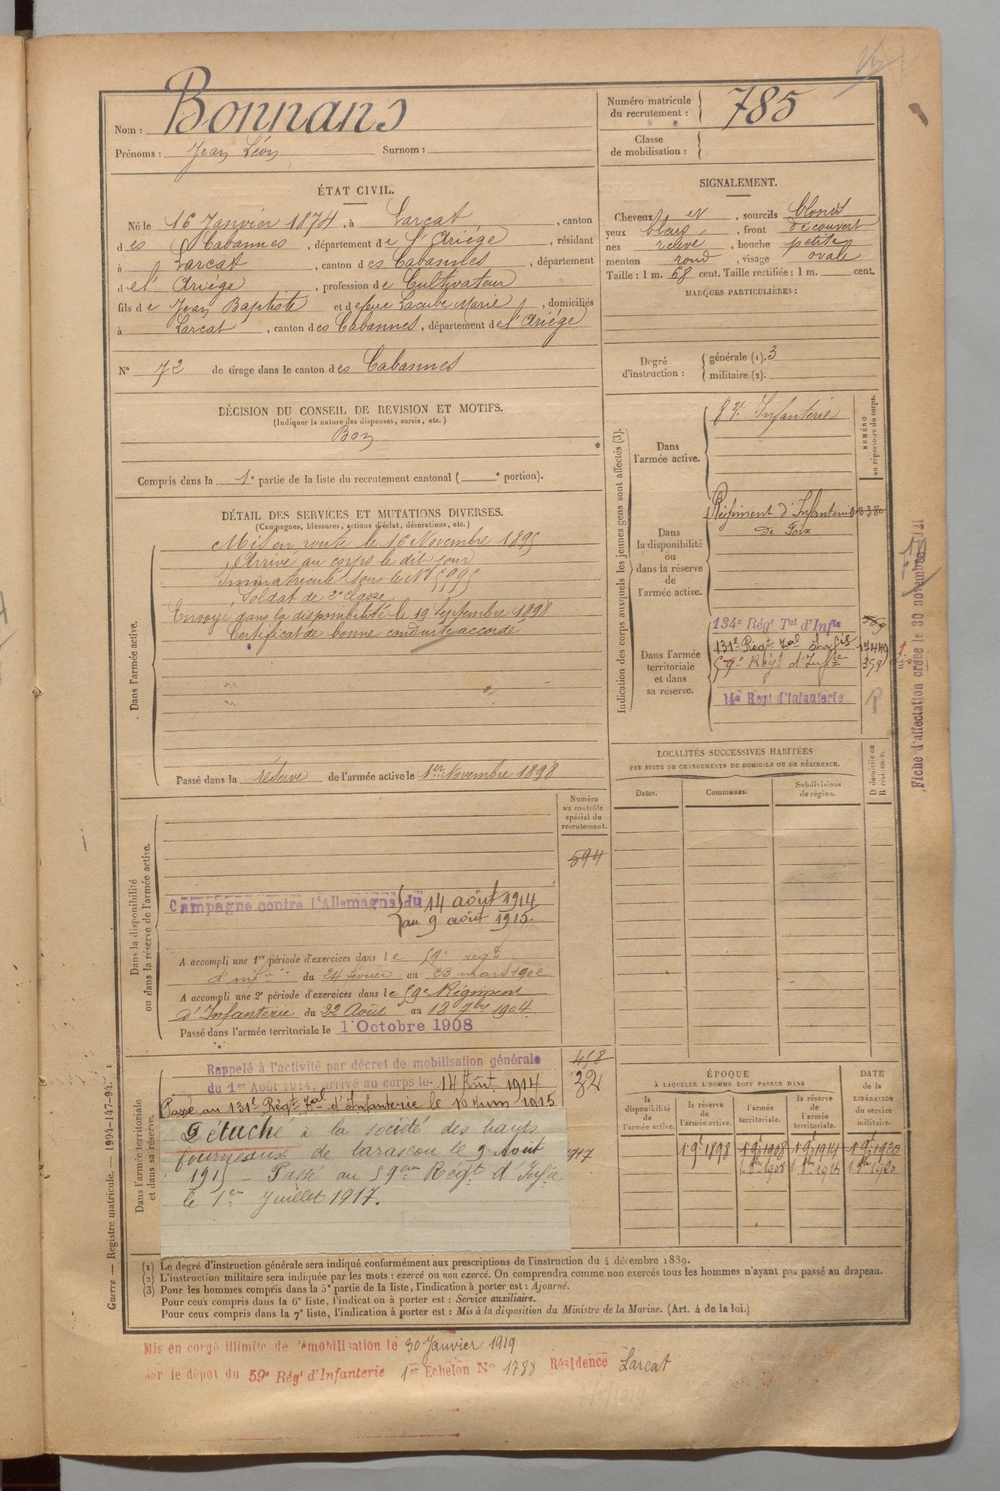 Nom : Bonnans
Prénoms : Jean Léon Surnom :
Numéro matricule du recrutement : 785
Classe de mobilisation :
ÉTAT CIVIL.
Né le 16 Janvier 1874, à Larcat, canton
des Cabannes, département de l'Ariége, résidant
à Larcat, canton des Cabannes, département
de l'Ariége, profession de Cultivateur
fils de Jean Baptiste et de feue Lacube Marie, domiciliés
à Larcat, canton des Cabannes, département de l'Ariége
N° 72 de tirage dans le canton des Cabannes
SIGNALEMENT.
Cheveux et, sourcils blonds
yeux bleus, front découvert
nez relevé, bouche petite
menton rond, visage ovale
Taille : 1 m. 68 cent. Taille rectifiée : 1 m. cent.
MARQUES PARTICULIÈRES :
Degré d'instruction : générale (1). 3
militaire (2).
DÉCISION DU CONSEIL DE REVISION ET MOTIFS.
(Indiquer la nature des dispenses, sursis, etc.)
Bon
Compris dans la 1e partie de la liste du recrutement cantonal ( e portion).
DÉTAIL DES SERVICES ET MUTATIONS DIVERSES.
(Campagnes, blessures, actions d'éclat, décorations, etc.)
Dans l'armée active.
Mis en route le 16 Novembre 1895
Arrivé au corps le dit jour
Immatriculé sous le N° 5995
Soldat de 2e classe
Envoyé dans la disponibilité le 19 Septembre 1898
Certificat de bonne conduite accordé
Passé dans la réserve de l'armée active le 1er Novembre 1898
Indication des corps auxquels les jeunes gens sont affectés (3).
NUMÉRO au répertoire du corps.
Dans l'armée active.
Infanterie
Dans la disponibilité ou dans la réserve de l'armée active.
Régiment d'Infanterie
de Foix
Dans l'armée territoriale et dans sa réserve.
134e Régt Tal d'Infie
131e Régt Tal Infie
59e Régt d'Infie 358
14e Regt d'Infanterie
R
Fiche d'affectation créée le 30 novembre 1921
LOCALITÉS SUCCESSIVES HABITÉES
PAR SUITE DE CHANGEMENTS DE DOMICILE OU DE RÉSIDENCE.
Dates. Communes. Subdivisions de région. D domicile ou R résidence.
Dans la disponibilité ou dans la réserve de l'armée active.
Numéro au contrôle spécial du recrutement.
594
Campagne contre l'Allemagne du 14 août 1914
au 9 août 1915.
A accompli une 1re période d'exercices dans le 59e régt
d'infie du 24 février au 23 mars 1902
A accompli une 2e période d'exercices dans le 59e Régiment
d'Infanterie du 22 Août au 18 7bre 1904.
Passé dans l'armée territoriale le 1 Octobre 1908
Dans l'armée territoriale et dans sa réserve.
Rappelé à l'activité par décret de mobilisation générale
du 1er Août 1914, arrivé au corps le 14 Août 1914
Passé au 131e Régt Tal d'Infanterie le 10 Juin 1915
458
32
Détaché à la société des hauts
fourneaux de tarascon le 9 Août
1915 - Passé au 59eme Régt d'Infie
le 1er Juillet 1917.
1917
ÉPOQUE
À LAQUELLE L'HOMME DOIT PASSER DANS
la disponibilité de l'armée active. la réserve de l'armée active. l'armée territoriale. la réserve de l'armée territoriale.
DATE de la LIBÉRATION du service militaire.
1 9e 1898 1 9e 1908 1 9e 1914 1 9e 1920
1908 1914 1920
(1) Le degré d'instruction générale sera indiqué conformément aux prescriptions de l'instruction du 4 décembre 1889.
(2) L'instruction militaire sera indiquée par les mots : exercé ou non exercé. On comprendra comme non exercés tous les hommes n'ayant pas passé au drapeau.
(3) Pour les hommes compris dans la 5e partie de la liste, l'indication à porter est : Ajourné.
Pour ceux compris dans la 6e liste, l'indication à porter est : Service auxiliaire.
Pour ceux compris dans la 7e liste, l'indication à porter est : Mis à la disposition du Ministre de la Marine. (Art. 4 de la loi.)
Guerre — Registre matricule. — 1994-147-94.
Mis en congé illimité de démobilisation le 30 Janvier 1919
par le dépot du 59e Régt d'Infanterie 1er Echelon N° 1788 Résidence Larcat